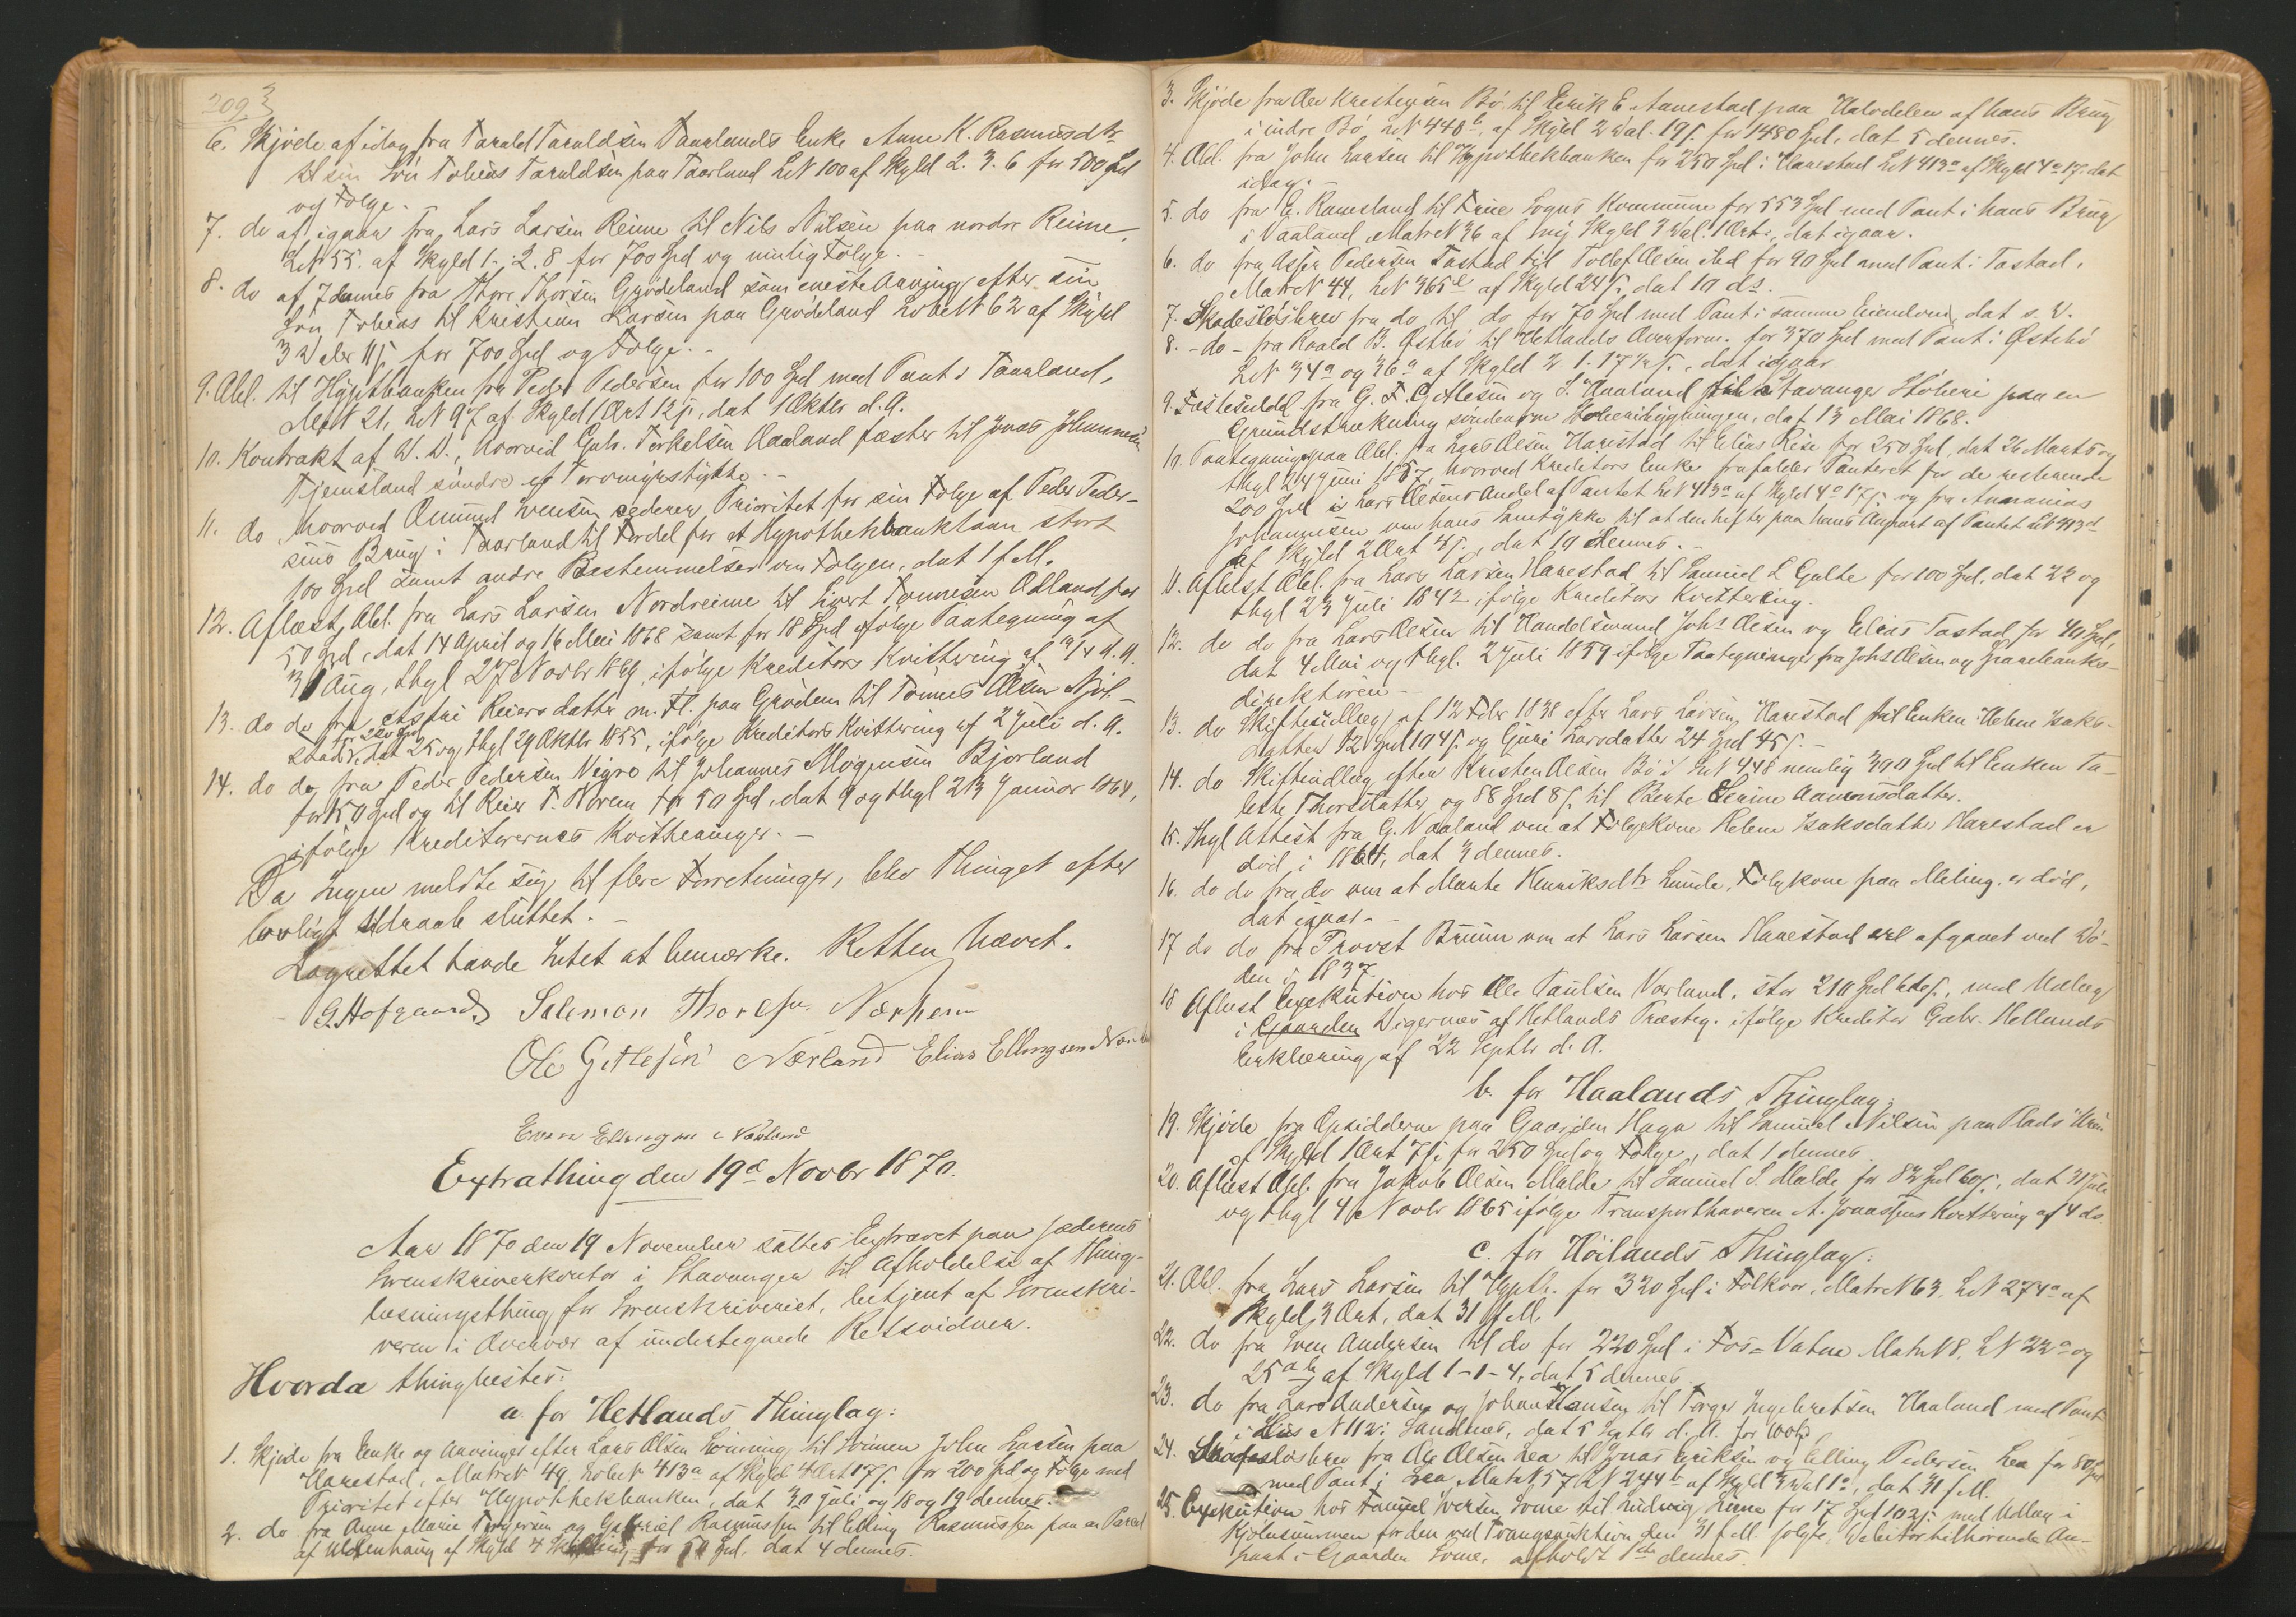 209
6. Skjöde af idag fra Tarald Taraldsen Taarlands Enke Anne K. Rasmusdtr
til sin Sön Tobias Taraldsen paa Taarland LN 100 af Skyld 2. 3. 6 for 500 Spd
og Folge.
7. do af igaar fra Lars Larsen Reime til Nils Nilsen paa nordre Reime
LN 55. af Skyld 1-.2.8 for 700 Spd og mulig Folge.
8. do af 7 dennes fra Thore Thorsen Grödeland som eneste Arving efter sin
Sön Tobias til Kristian Larsen paa Grödeland LöbeN 62 af Skyld
3 Daler 11 s for 700 Spd og Folge.
9. Obl. til Hypthbanken fra Peder Pedersen for 100 Spd med Pant i Taarland,
MN 21, LN 97 af Skyld 1 Ort 12 s, dat 1 Oktbr d. A.
10. Kontrakt af S. D., hvorved Gabr. Torkelsen Aaland fæster til Jonas Johannesen
Tjemsland söndre et Torvmyrstykke.
11. do hvorved Omund Svensen cederer Prioritet for sin Folge af Peder Peder-
sens Brug i Taarland til Fordel for et Hypothekbanklaan stort
100 Spd samt andre Bestemmelser om Folgen, dat 1 f. M.
12. Aflæst Obl. fra Lars Larsen Nordreime til Sivert Tönnesen Odland for
50 Spd, dat 14 April og 16 Mai 1868 samt for 18 Spd ifolge Paategning af
31 Aug, thgl 27 Novbr 1869, ifolge Kreditors Kvittering af
13. do do fra Astri Reiersdatter m. Fl. paa Grödem til Tönnes Olsen Njöl-
for 220 Spd
stad, dat 25 og thgl 29 Oktbr 1855, ifolge Kreditors Kvittering af 2 Juli d. A.
14. do do fra Peder Pedersen Vigre til Johannes Mogensen Bjorland
for 150 Spd og til Reier T. Norem for 50 Spd, dat 9 og thgl 23 Januar 1864,
ifolge Kreditorernes Kvitteringer.
Da Ingen meldte sig til flere Forretninger, blev Thinget efter
lovligt Udraab sluttet.
Lagrettet havde Intet at bemærke. Retten hævet.
G. Hofgaard Salomon Thoressen Nærheim
Ole Gitlesen Nærland Elias Ellingsen
Even Ellingsen Nærland
Extrathing den 19d Novbr 1870.
Aar 1870 den 19 November sattes Extraret paa Jæderens
Sorenskriverkontor i Stavanger til Afholdelse af Thing-
læsningsthing for Sorenskriveriet, betjent af Sorenskri-
veren i Overvær af undertegnede Retsvidner.
Hvorda thinglæstes:
a. for Hetlands Thinglag:
1. Skjöde fra Enke og Arvinger efter Lars Olsen til Svinen John Larsen paa
Harestad, MatrN 49, LöbeN 413a af Skyld 4 Ort 17 s for 200 Spd og Folge med
Prioritet efter Hypothekbanken, dat 30 Juli og 18 og 19 dennes.
2. do fra Anne Marie Torgersen og Gabriel Rasmussen til Elling Rasmussen paa en Parcel
af af Skyld 4 Skilling for 50 Spd, dat 4 dennes.
3. Skjöde fra Ole Kristensen Bö til Eirik E Aanestad paa Halvdelen af hans Brug
i indre Bö LN 448b, af Skyld 2 Dal. 19 s. for 1480 Spd, dat 5 dennes.
4. Obl. fra John Larsen til Hypothekbanken for 250 Spd i Harestad LN 413a af Skyld 4 o 17 s. dat
idag.
5. do fra E. Ramsland til Frue Sogns Kommune for 553 Spd med Pant i hans Brug
i Vaaland, MatrN 36 af ny Skyld 3 Dal. 1 Ort, dat igaar.
6. do fra Asser Pedersen Tastad til Tollef Olsen ibd for 90 Spd med Pant i Tastad,
MatrN 44, LN 365 af Skyld 24 s, dat 10 ds.
7. Skadeslösbrev fra do til do for 70 Spd med Pant i samme Eiendom, dat s. D.
8. - do - fra Roald B. Østbö til Hetlands Overform. for 370 Spd med Pant i Østebö
LN 34a og 36a af Skyld 2. 1. 17 s, dat igaar
9. Fæsteseddel fra G. F. Gitlesen og J. Haaland til Stavanger Stöberi paa en
Grundstrækning söndenom Stöberibygningen, dat 13 Mai 1868.
10. Paategning paa Obl. fra Lars Olsen Harestad til Elias Rise for 250 Spd, dat 26 Marts og
thgl 24 Juni 1857, hvorved Kreditors Enke frafalder Panteret for de resterende
200 Spd i Lars Olsens Andel af Pantet LN 413a af Skyld 4 o 17 s og fra Annanias
Johannesen om hans Samtykke til at den hefter paa hans Anpart af Pantet LN 413d
af Skyld 2 Ort 4 s, dat 19 dennes.
11. Aflæst Obl. fra Lars Larsen Harestad til Samuel L Galte for 100 Spd, dat 22 og
thgl 23 Juli 1842 ifolge Kreditors Kvittering.
12. do do fra Lars Olsen til Handelsmand Johs Olsen og Elias Tastad for 40 Spd,
dat 4 Mai og thgl. 2 Juli 1859 ifolge Paategninger fra Johs Olsen og Sparebanks-
direktören
13. do Skifteudlæg af 12 Febr 1838 efter Lars Larsen Harestad til Enken Helene Isaks-
datter 12 Spd 194 s. og Guri Larsdatter 24 Spd 45 s.
14. do Skifteudlæg efter Kristen Olsen Bö i LN 448 nemlig 390 Spd til Enken Ta-
lette Thorsdatter og 88 Spd 8 s. til Berte Serine Aamonsdatter.
15. Thgl Attest fra G. Vaaland om at Folgekone Helene Isaksdatter Harestad er
död i 1864, dat 3 dennes.
16. do do fra do om at Marte Henriksdtr Lunde, Folgkone paa Meling er död,
dat igaar.
17 do do fra Provst Bruun om at Lars Larsen Harestad er afgaaet ved Dö-
den i 1837.
18 Aflæst Exekution hos Ole Paulsen Varland, stor 210 Spd, med Udlæg
i Gaarden Digernes af Hetlands Præsteg. ifolge Kreditor Gabr. Hellands
Erklæring af 22 Septbr d. A.
b. for Haalands Thinglag:
19. Skjöde fra Opsidderne paa Gaarden Haga til Samuel Nilsen paa Plads
af Skyld 1 Ort 7 s for 250 Spd og Folge, dat 1 dennes
20. Aflæst Obl. fra Jakob Olsen Malde til Samuel S. Malde for 83 Spd 60 s, dat 31 Juli
og thgl 4 Novbr 1865 ifolge Transporthaveren A. Jonassens Kvittering af 4 ds.
c. for Höilands Thinglag:
21. Obl. fra Lars Larsen til Hypth. for 320 Spd i Folkvor, MatrN 63, LN 274a af
Skyld 3 Ort, dat 31 f. M.
22. do fra Sven Andersen til do for 220 Spd i Fos=Vatne MatrN 8, LN 22a og
25ab af Skyld 1-1-4, dat 5 dennes
23. do fra Lars Andersen og Johan Hansen til Torger Ingebretsen Haaland med Pant
i Hus N 112 i Sandnes, dat 5 Septbr d. A. for 100 Sp
24. Skadeslösbrev fra Ole Olsen Lea til Jonas Eriksen og Elling Pedersen Lea for 80 Spd
med Pant i Lea MatrN 57 LN 244b af Skyld 3 Dal 1 o, dat 31 f. M.
25. Exekution hos Samuel Iversen Some til Ludvig Lunn for 17 Spd 102 s. med Udlæg i
Kjöbesummen for den ved Tvangsauktion den 31 f. M. solgte, Debitor tilhörende An-
part i Gaarden Some, afholdt 1ste dennes.